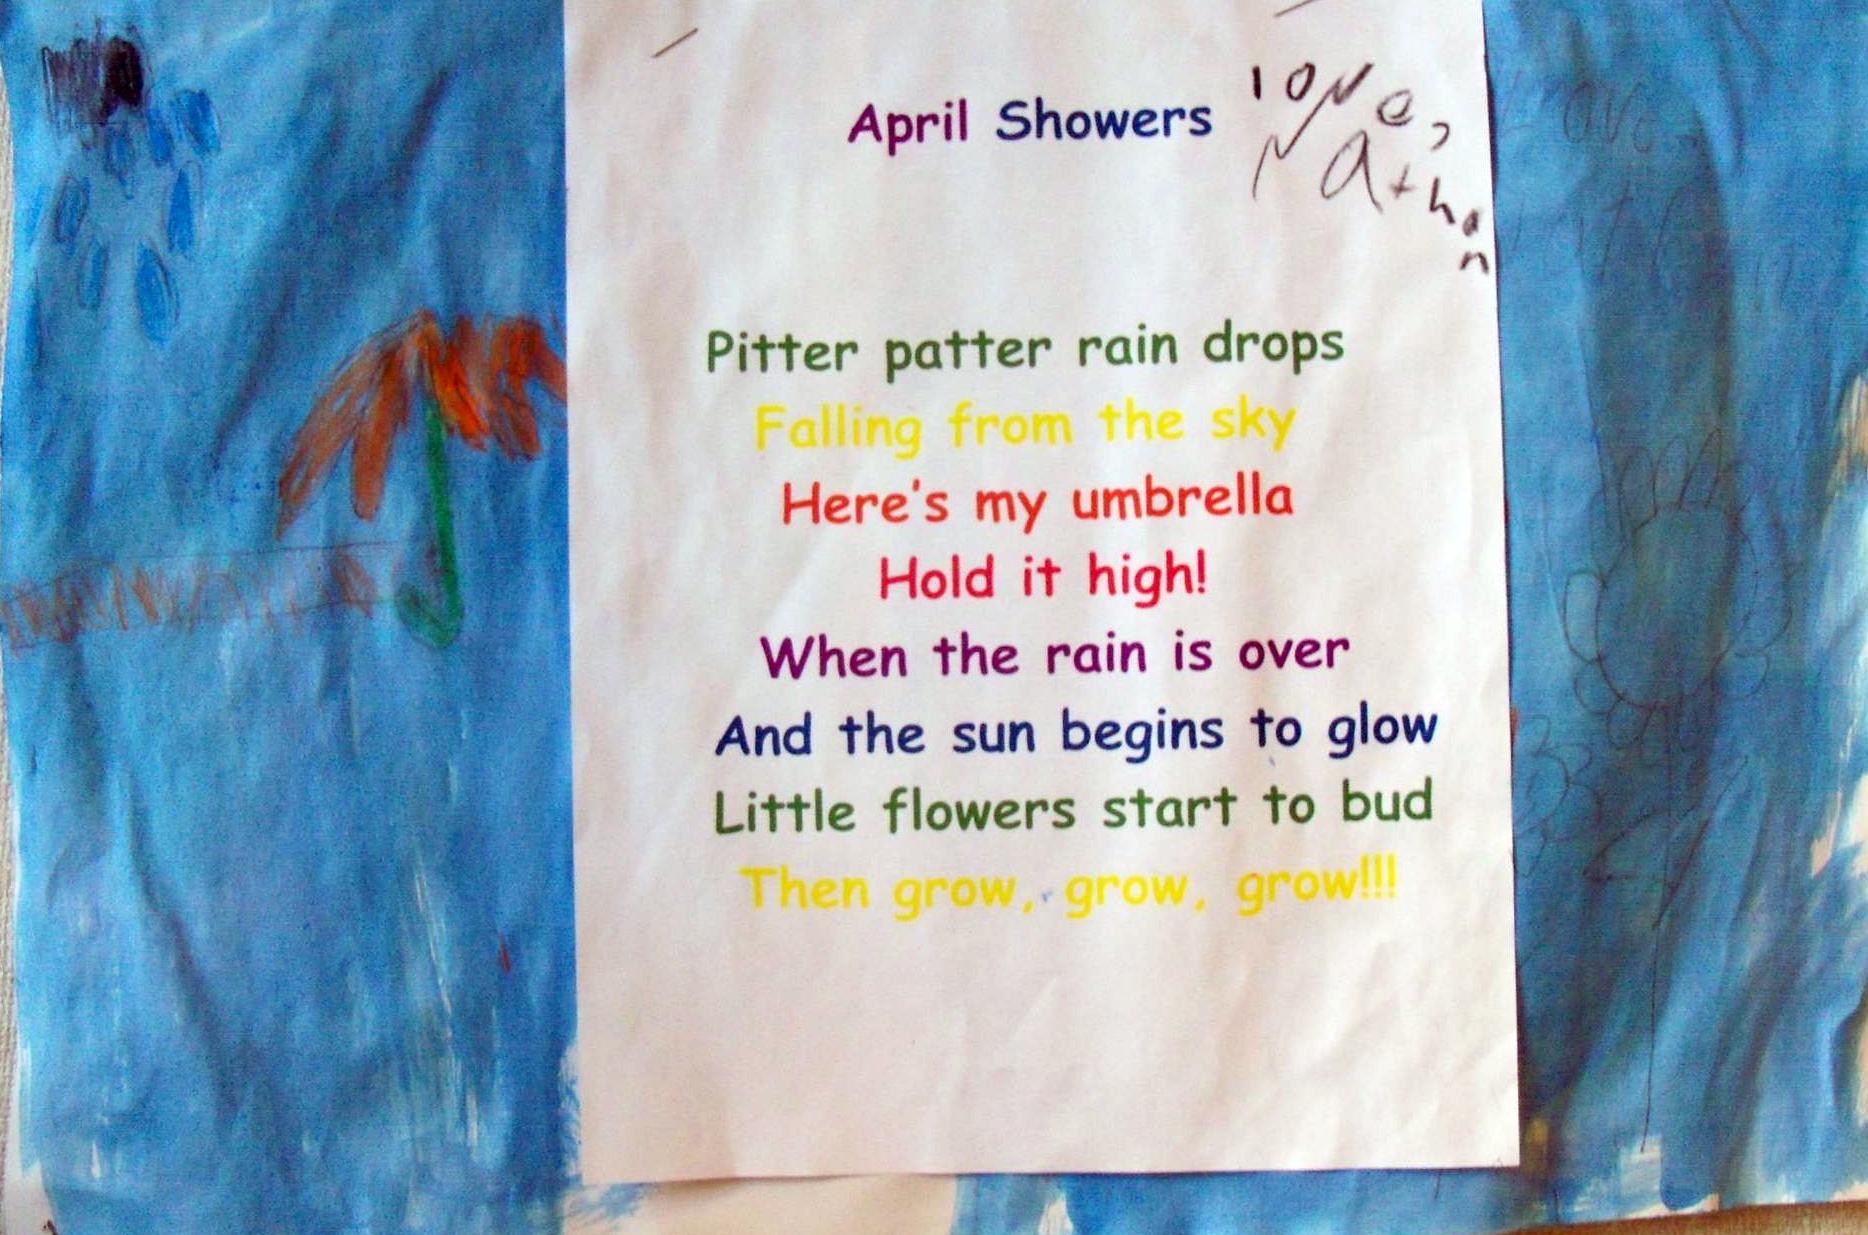 April Showers
love,
Nathan
Pitter patter rain drops
Falling from the sky
Here's my umbrella
Hold it high!
When the rain is over
And the sun begins to glow
Little flowers start to bud
Then grow, grow, grow!!!